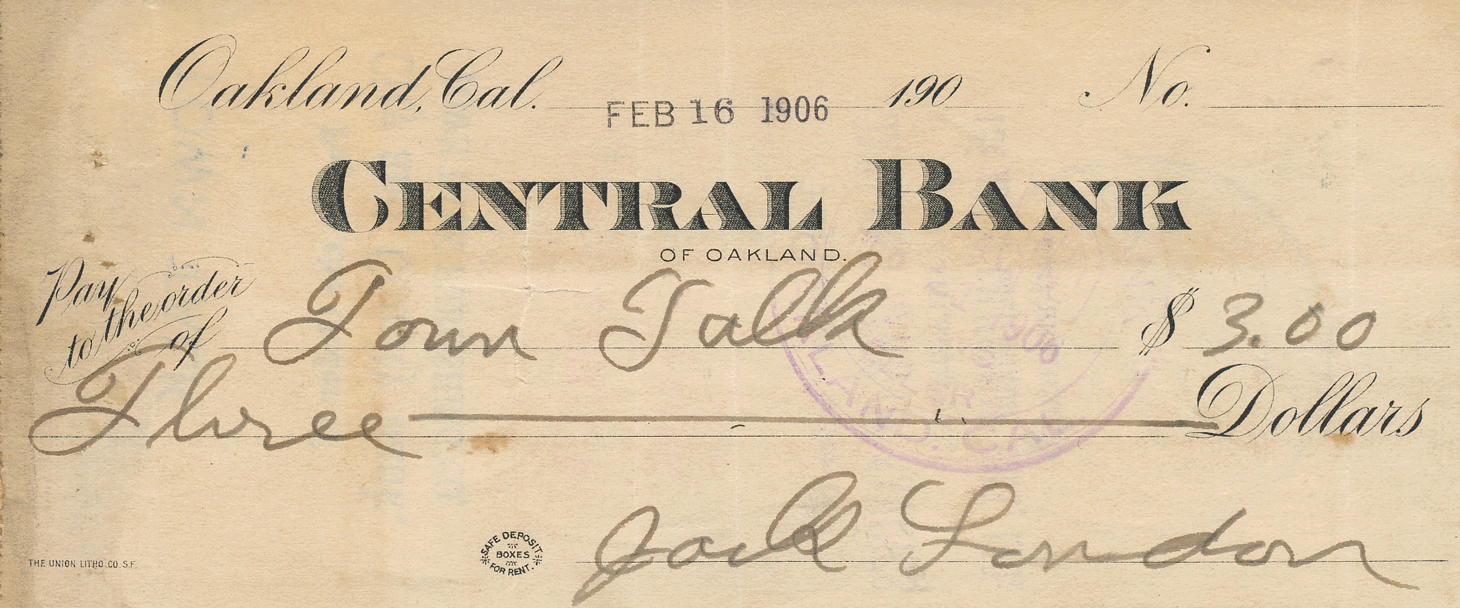 Oakland, Cal. FEB 16 1906 190 No.
CENTRAL BANK
OF OAKLAND.
Pay to the order of Town Talk $ 3.00
Three Dollars
Jack London
SAFE DEPOSIT BOXES FOR RENT.
THE UNION LITHO. CO. S.F.
LAND. CAL